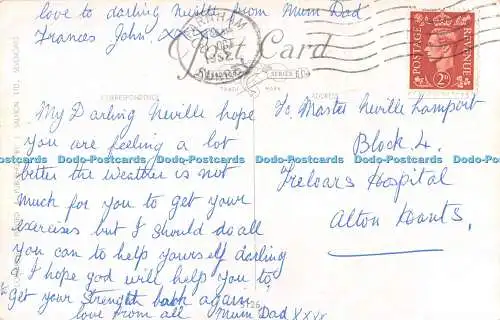 love to darling Neville from Mum Dad
Frances John, xxxxx
FARNHAM
1952
SURREY
Post Card
SERIES
TRADE MARK
POSTAGE
REVENUE
2D
CORRESPONDENCE
ADDRESS
My Darling Neville hope
you are feeling a lot
better the weather is not
much for you to get your
exercises but I should do all
you can to help yourself darling
& I hope god will help you to
Get your Strength back again
love from all Mum Dad xxxx
5126
To Master Neville Lamport
Block 4.
Treloars Hospital
Alton Hants.
J. SALMON LTD., SEVENOAKS
Dodo-Postcards Dodo-Postcards Dodo-Postcards Dodo-Postcards Dodo-Postcards Dodo-Postcards